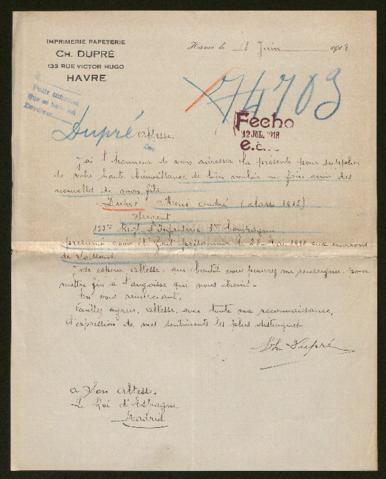 IMPRIMERIE PAPETERIE
CH. DUPRÉ
133 RUE VICTOR HUGO
HAVRE
Havre le Juin 1918
74703
Fecho
12 JUL. 1918
Dupré Altesse.
J'ai l'honneur de vous adresser la présente pour
de votre haute bienveillance de bien vouloir me faire avoir des
nouvelles de mon fils.
Dupré René André (classe 1912)
Sergent
Rég. d'Infanterie
présumé avoir été fait prisonnier le 1918 aux environs
de
J'ose espérer Altesse, que bientôt vous pourrez me renseigner, pour
mettre fin à l'angoisse qui nous étreint.
En vous remerciant.
Veuillez agréer, Altesse, avec toute ma reconnaissance,
l'expression de mes sentiments les plus distingués
Ch. Dupré
a Son Altesse.
Le Roi d'Espagne
Madrid